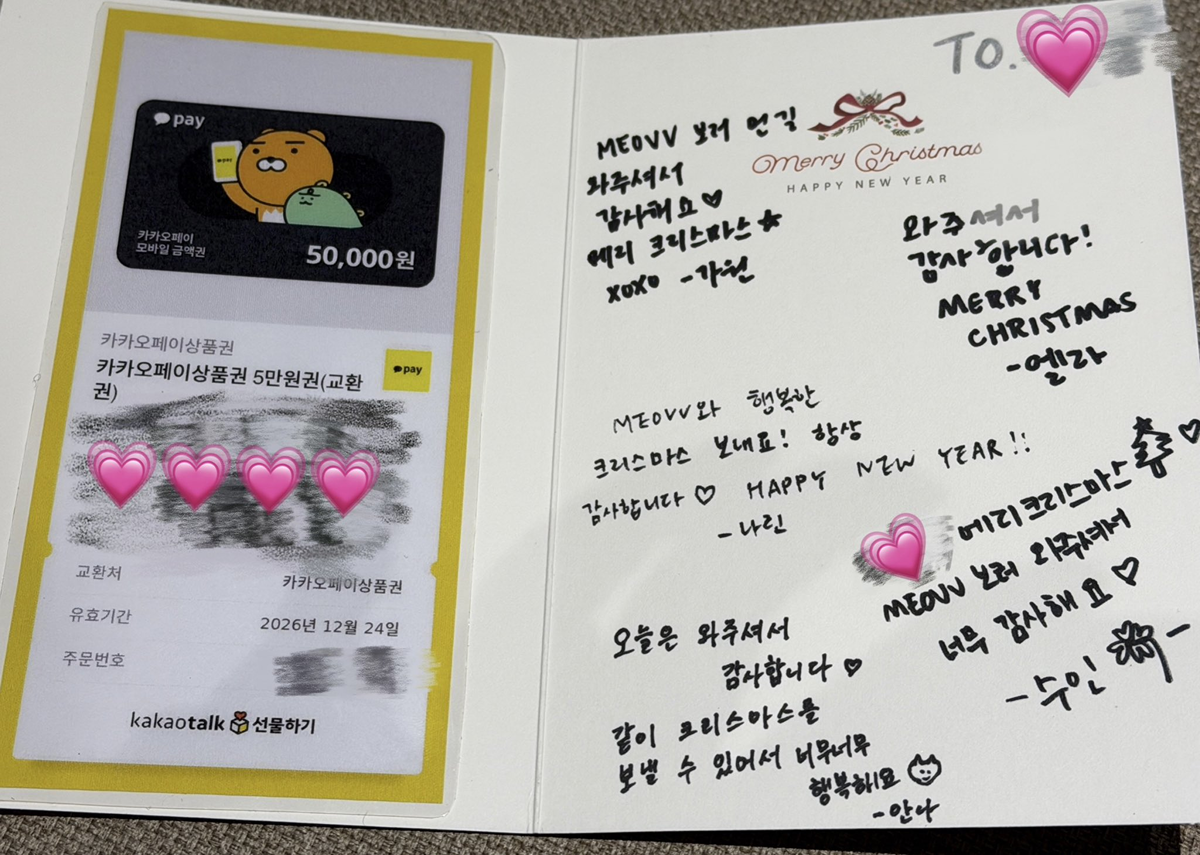 pay
카카오페이
모바일 금액권
50,000원
카카오페이상품권
카카오페이상품권 5만원권(교환
권)
pay
교환처 카카오페이상품권
유효기간 2026년 12월 24일
주문번호
kakaotalk 선물하기
TO.
Merry Christmas
HAPPY NEW YEAR
MEOVV 보러 먼길
와주셔서
감사해요♡
메리 크리스마스★
xoxo -가원
와주셔서
감사합니다!
MERRY
CHRISTMAS
-엘라
MEOVV와 행복한
크리스마스 보내요! 항상
감사합니다♡ HAPPY NEW YEAR!!
-나린
메리크리스마스
MEOVV 보러 와주셔서
너무 감사해요♡
-수인-
오늘은 와주셔서
감사합니다♡
같이 크리스마스를
보낼 수 있어서 너무너무
행복해요
-안나